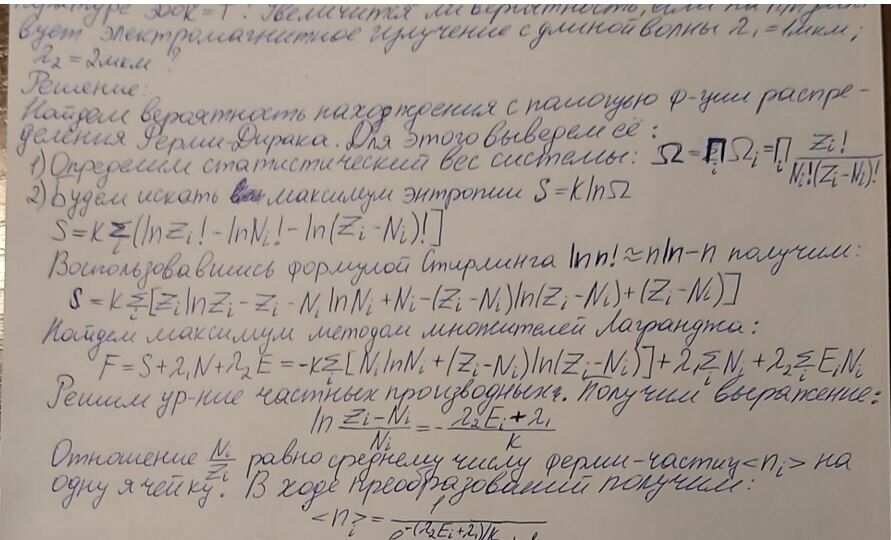 300К = T. Увеличится ли вероятность, если на
вует электромагнитное излучение с длиной волны λ₁ = 1мкм;
λ₂ = 2мкм?
Решение:
Найдем вероятность нахождения с помощью ф-ции распре-
деления Ферми-Дирака. Для этого выведем её:
1) Определим статистический вес системы: Ω = ∏i Ωi = ∏i Zi!/(Ni!(Zi-Ni)!)
2) Будем искать максимум энтропии S = k lnΩ
S = k Σi (lnZi! - lnNi! - ln(Zi-Ni)!]
Воспользовавшись формулой Стирлинга ln n! ≈ n ln - n получим:
S = k Σi [Zi lnZi - Zi - Ni lnNi + Ni - (Zi-Ni)ln(Zi-Ni) + (Zi-Ni)]
Найдем максимум методом множителей Лагранджа:
F = S + λ₁N + λ₂E = -k Σi [Ni lnNi + (Zi-Ni)ln(Zi-Ni)] + λ₁ Σi Ni + λ₂ Σi EiNi
Решим ур-ние частных производных. Получим выражение:
ln (Zi-Ni)/Ni = - (λ₂Ei + λ₁)/k
Отношение Ni/Zi равно среднему числу ферми-частиц <ni> на
одну ячейку. В ходе преобразований получим:
<n>i = 1/e^-(λ₂Ei+λ₁)/k